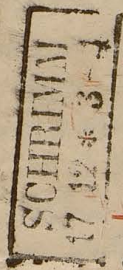 SCHRIMM
17 12 * 3-4